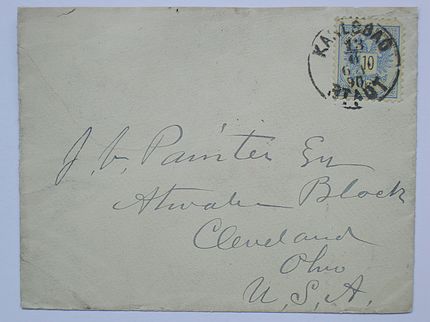 KARLSBAD
13
90
STADT
10
J. V. Painter Esq
Atwater Block
Cleveland
Ohio
U.S.A.